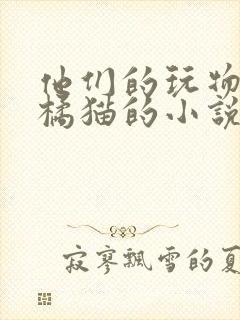 他们的玩物
橘猫的小説
寂寥飄雪的夏